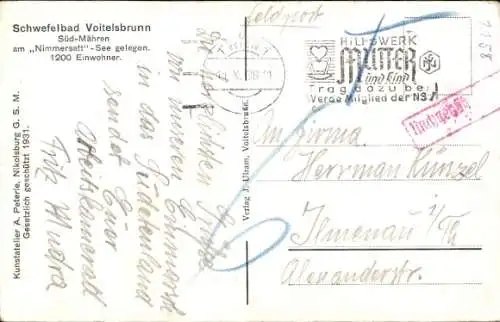 Schwefelbad Voitelsbrunn
Süd-Mähren
am „Nimmersatt"-See gelegen.
1200 Einwohner.
Kunstatelier A. Poterle, Nikolsburg G. S. M.
Gesetzlich geschützt 1931.
Die herzlichsten Grüße
von unseren Einmarsch
in das Sudetenland
sendet Euer
Arbeitskamerad
Fritz
Verlag J. Ulzam, Voitelsbrunn
Feldpost
WIEN
HILFSWERK
MUTTER
und Kind
Trag dazu bei
Werde Mitglied der NSV
Nachgebühr
An Firma
Herrman Künzel
Ilmenau i/Th
Alexanderstr.